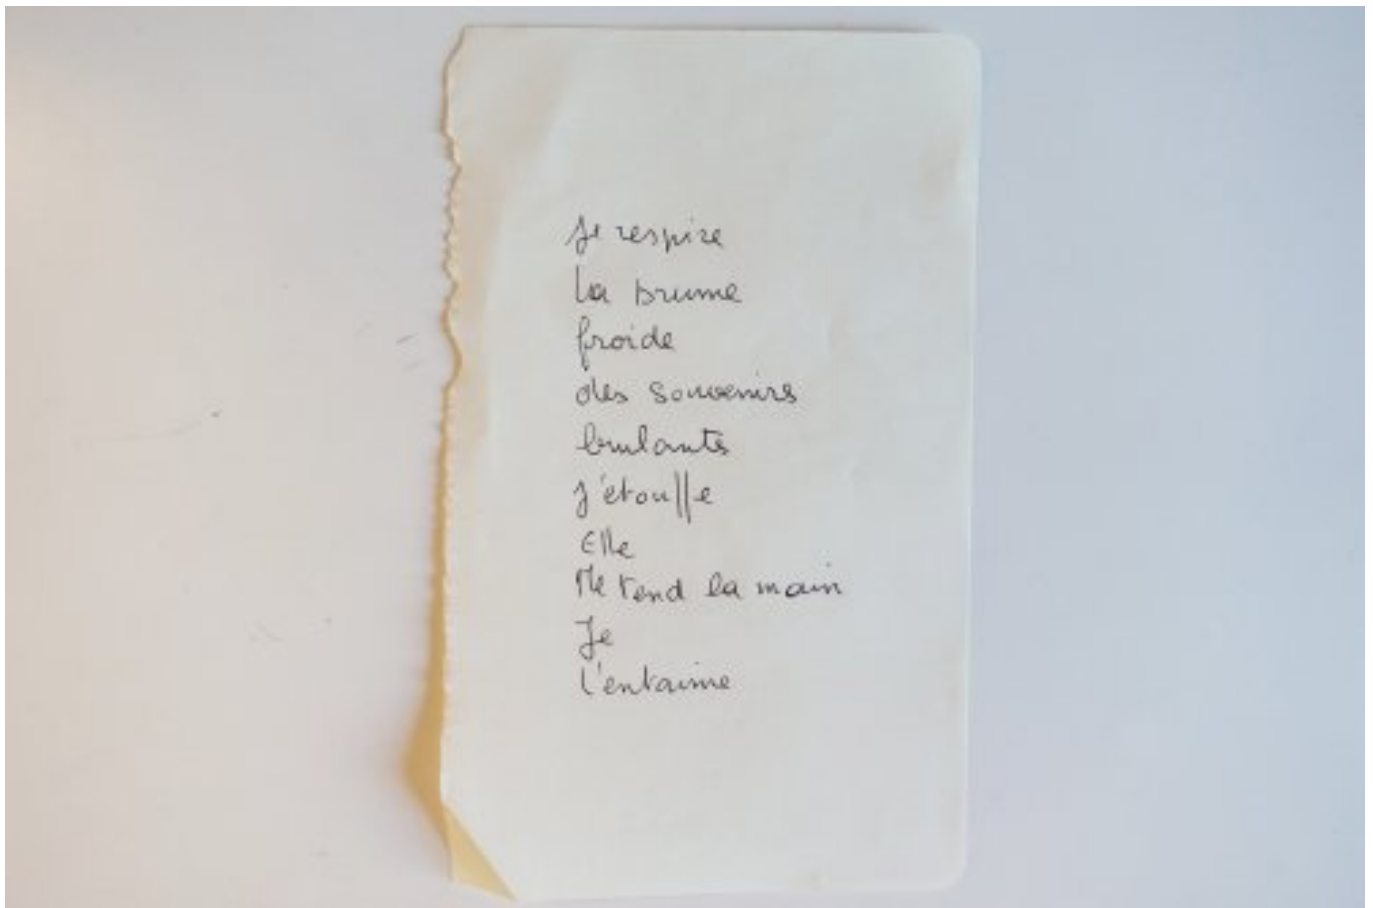 Je respire
la brume
froide
des souvenirs
brulants
J'etouffe
Elle
Me tend la main
Je
l'entaime